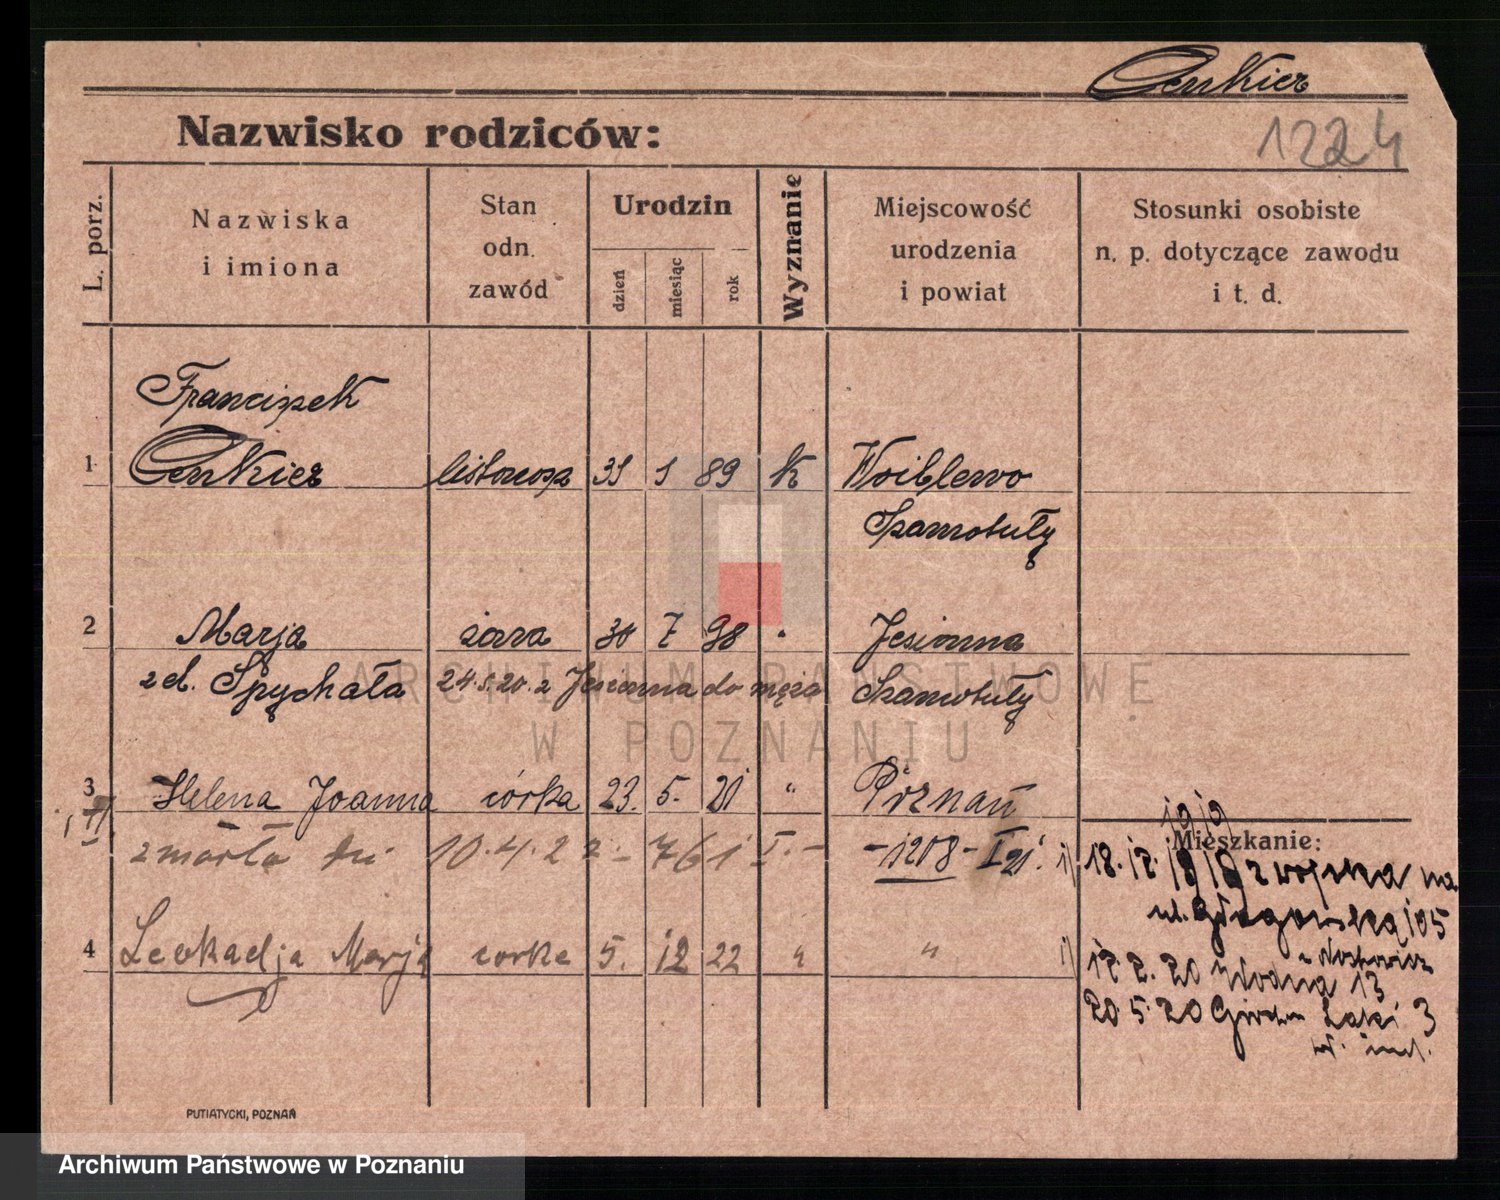 Cenkier
Nazwisko rodziców:
1224
L. porz.
Nazwiska
i imiona
Stan
odn.
zawód
Urodzin
dzień
miesiąc
rok
Wyznanie
Miejscowość
urodzenia
i powiat
Stosunki osobiste
n. p. dotyczące zawodu
i t. d.
Franciszek
1 Cenkier listonosz 31 1 89 k Woiblewo
Szamotuły
2 Marja żona 30 7 98 " Jesionna
zd. Spychała 24.5.20. z Jesionna do męża Szamotuły
3 Helena Joanna córka 23. 5. 21 " Poznań
zmarła dn. 10.4.22. - 761 I. - - 1208 - I 21.
1919
Mieszkanie:
18.12.1919 z wojska na
ul. Głogowska 105
4 Leokadja Marja corka 5. 12 22 " "
12.2.20 Wodna 13
20.5.20 Łąki 3
PUTIATYCKI, POZNAŃ
ARCHIWUM PAŃSTWOWE
W POZNANIU
Archiwum Państwowe w Poznaniu